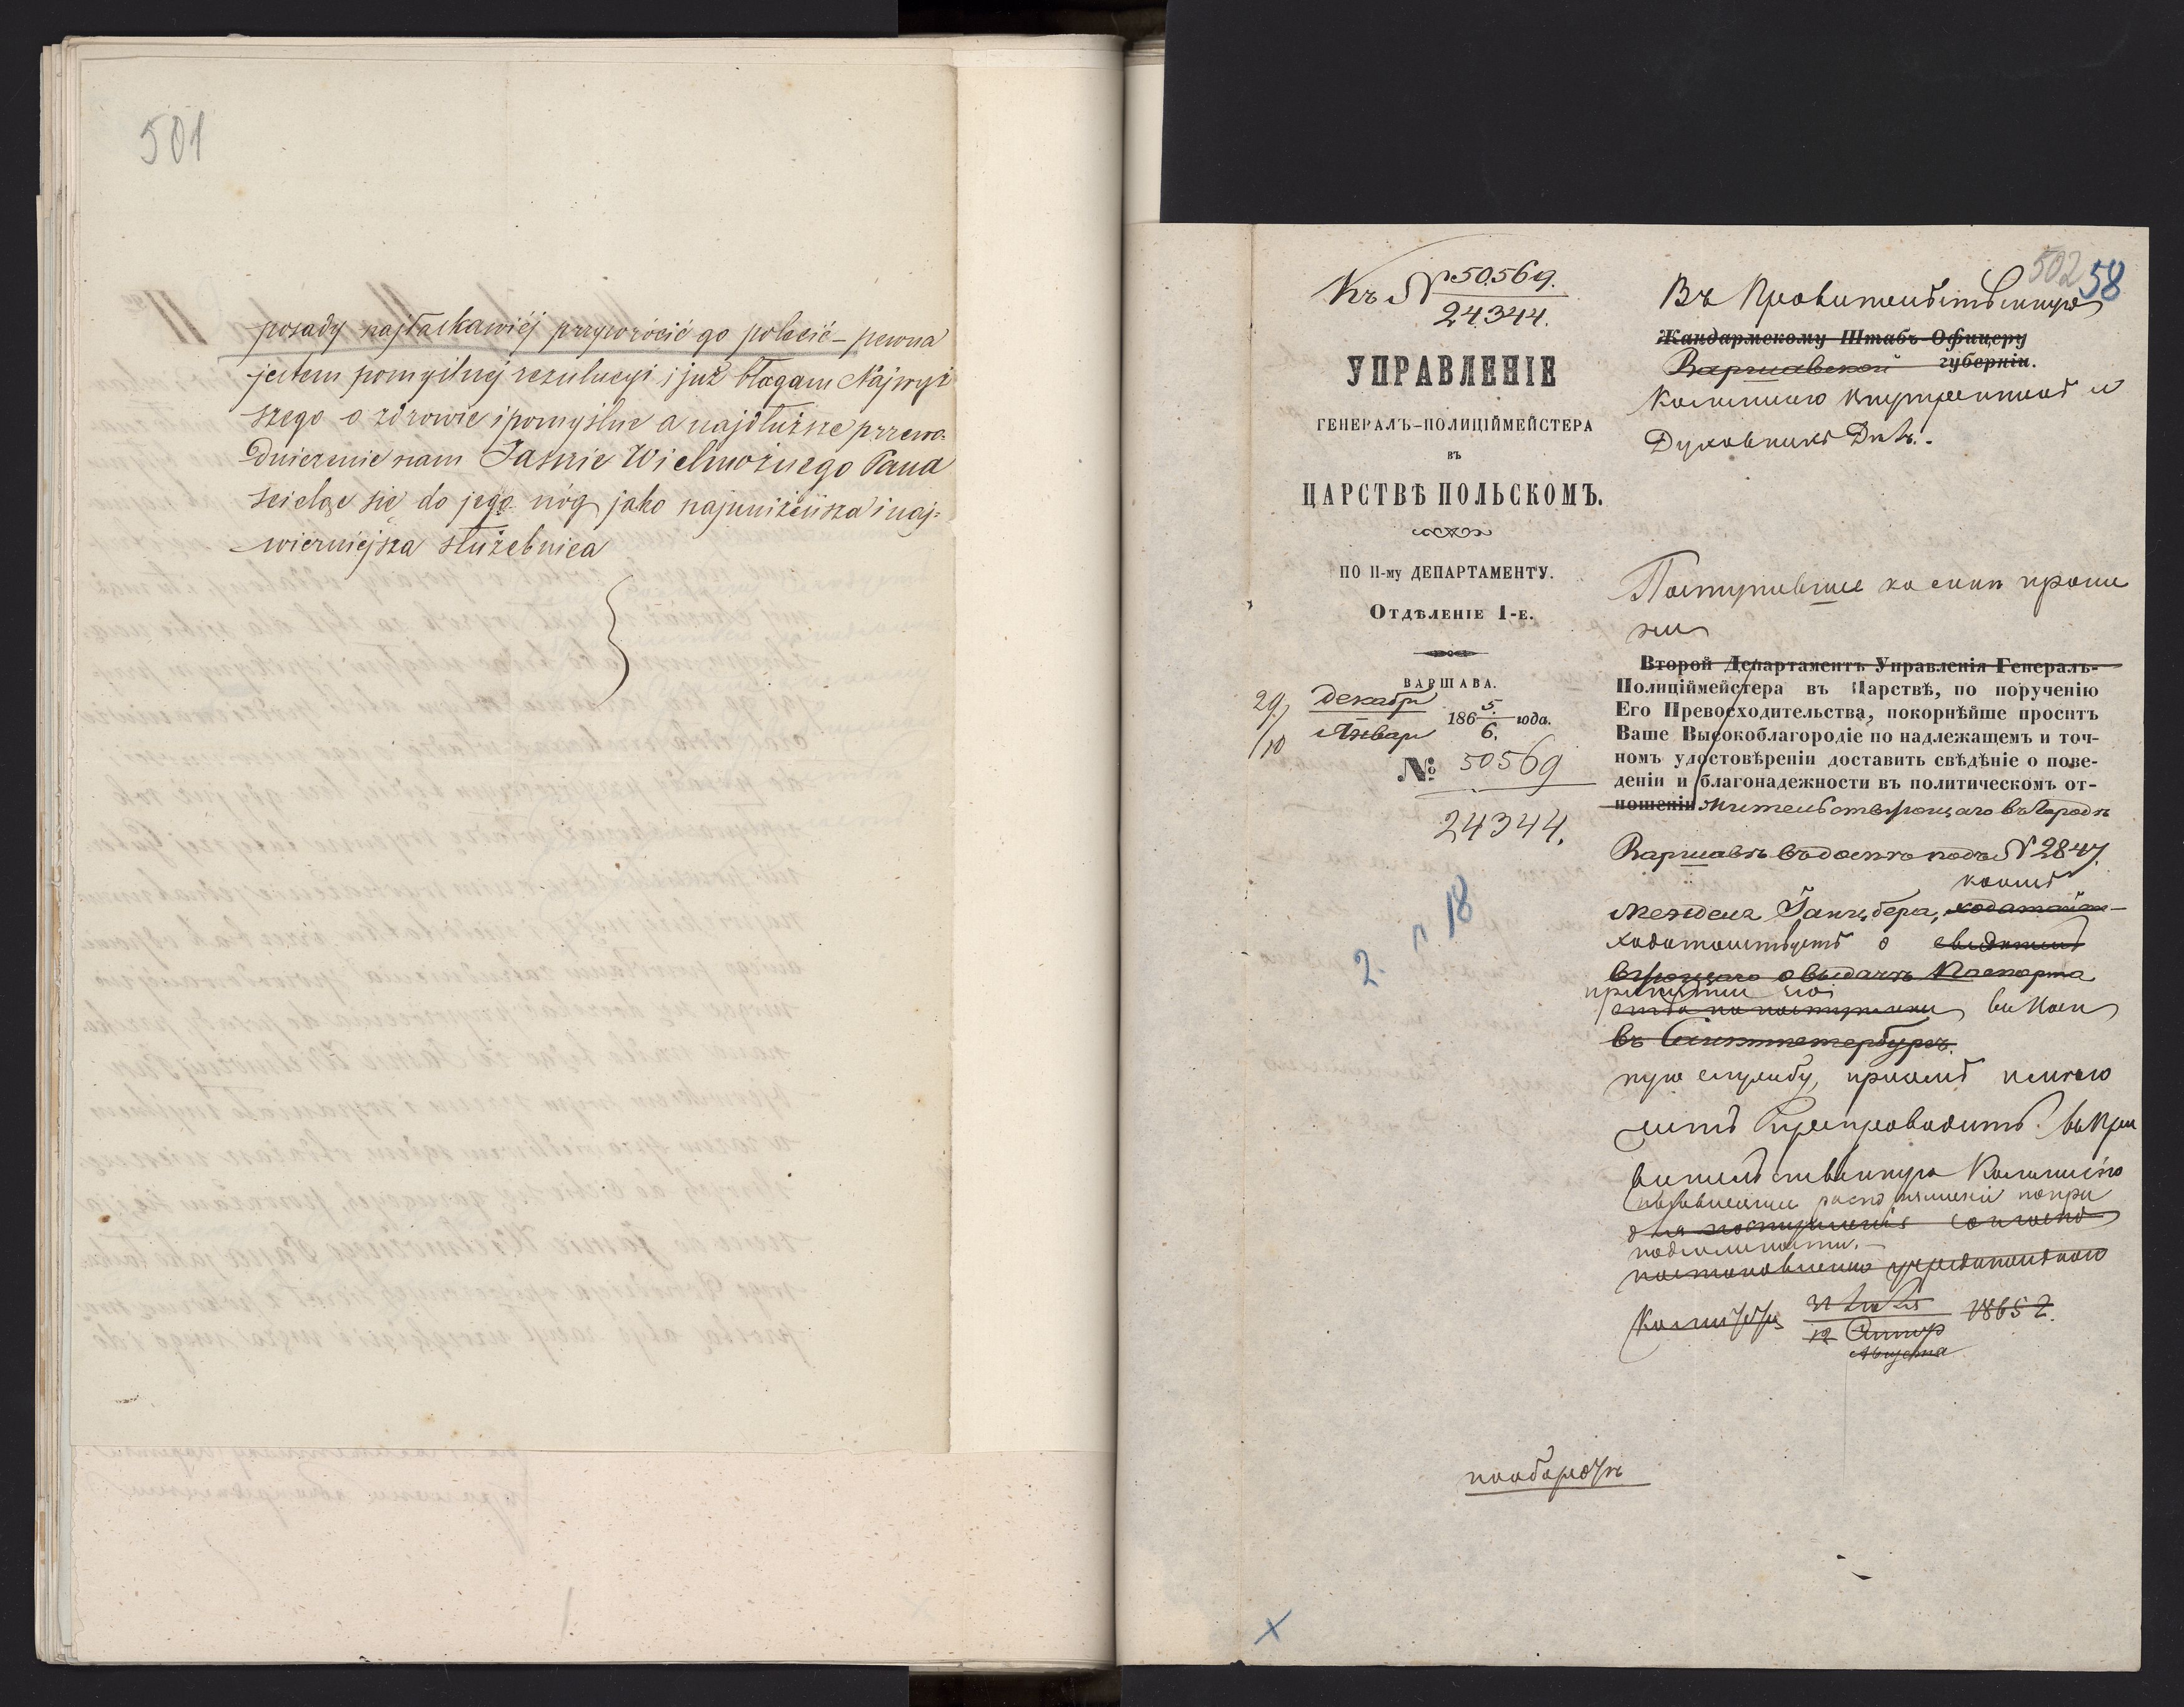 501
posady najłaskawiéj przywrócić go polecić – pewna
jestem pomyślnej rezulucyi i już błagam Najwyż
szego o zdrowie i pomyślne a najdłuższe przewo-
dniczenie nam Jaśnie Wielmożnego Pana
ścielę się do jego nóg jako najuniżeńsza i naj=
wierniejsza służebnica
502 58
Къ № 50569.
24344.
УПРАВЛЕНІЕ
ГЕНЕРАЛЪ-ПОЛИЦІЙМЕЙСТЕРА
ВЪ
ЦАРСТВѢ ПОЛЬСКОМЪ.
ПО II-му ДЕПАРТАМЕНТУ.
Отдѣленіе 1-е.
ВАРШАВА.
29/10 Декабря Января 186 5/6 года.
№ 50569
24344.
2. 18
Въ Правительственную
Жандармскому Штабъ-Офицеру
Варшавской губерніи.
Коммисію Внутреннихъ и
Духовныхъ Дѣлъ.
Поступившее ко мнѣ проше
ніе
Второй Департаментъ Управленія Генералъ-
Полиціймейстера въ Царствѣ, по порученію
Его Превосходительства, покорнѣйше проситъ
Ваше Высокоблагородіе по надлежащемъ и точ-
номъ удостовѣреніи доставить свѣдѣніе о пове-
деніи и благонадежности въ политическомъ от-
ношеніи жительствующаго въ городѣ
Варшавѣ въ домѣ подъ № 2847.
коимъ
Менделя Ганцбера, ходатай-
ходатайствуетъ о
о выдачѣ Паспорта
принятіи его
въ Воен
въ Санктпетербургъ.
ную службу, при семъ имѣю
честь препроводить въ Пра
вительственную Коммисію
для поступленія согласно
постановленію учредительнаго
Комитета 31 Іюля 12 Августа 1865 г.